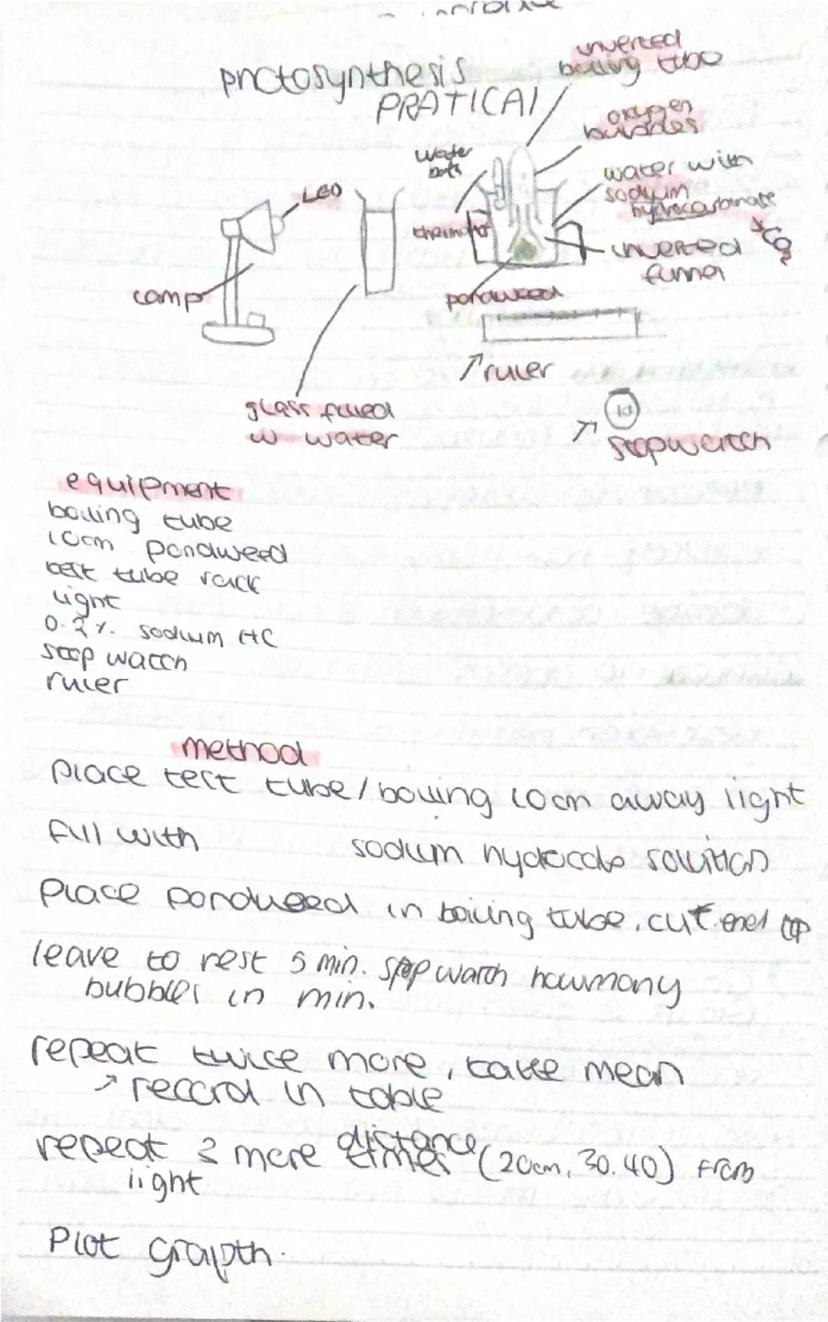 photosynthesis
PRATICAl
inverted
boiling tube
oxygen
bubbles
water
bath
water with
sodium
hydrocarbonate
LED
inverted
funnel
lamp
pondweed
ruler
glass filled
w water
stopwatch
equipment
boiling tube
10cm pondweed
test tube rack
light
0.2%. sodium HC
stop watch
ruler
method
place test tube/boiling 10cm away light
fill with sodium hydrocabo solution
place pondweed in boiling tube, cut end top
leave to rest 5 min. stop watch howmany
bubbles in min.
repeat twice more, take mean
record in table
distance
repeat 3 more (20cm, 30, 40) from
light
Plot grapth.